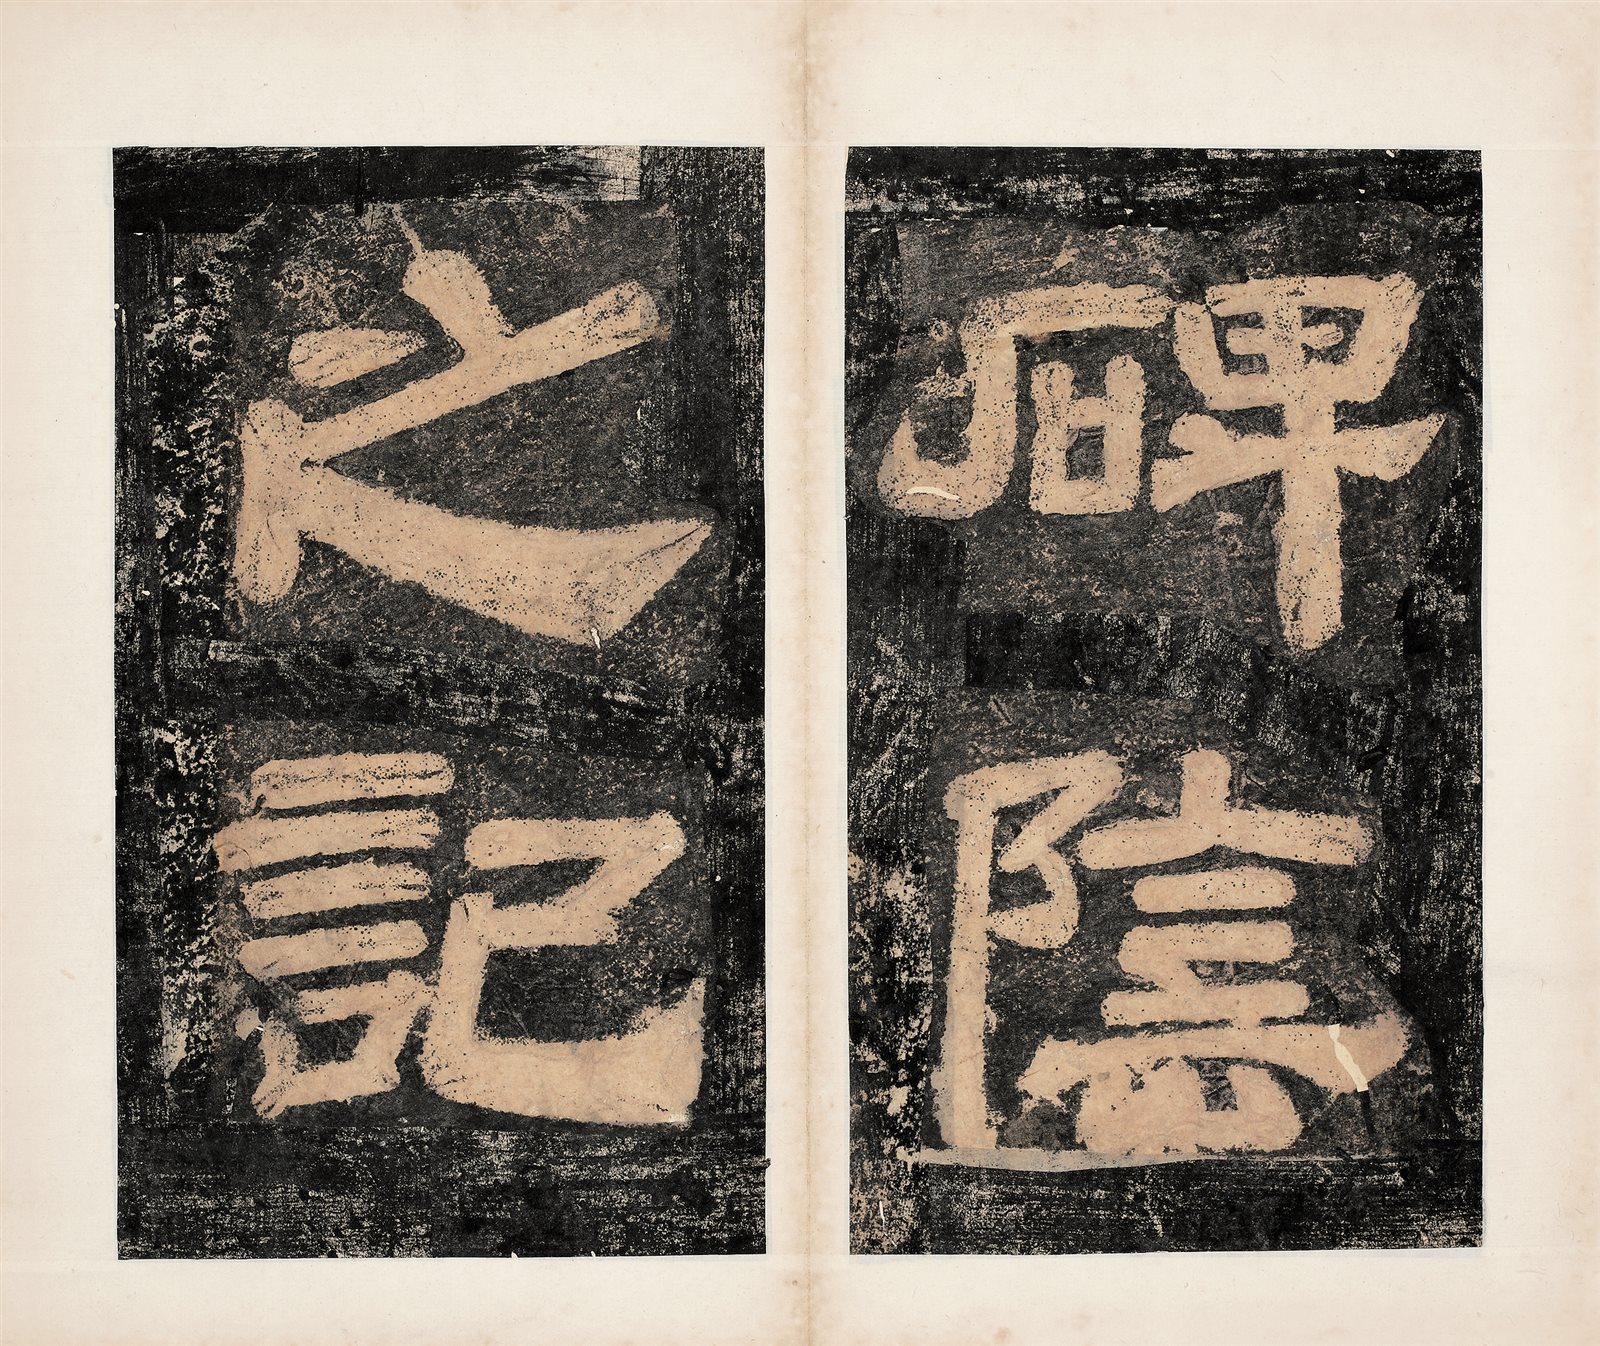 碑陰
之記